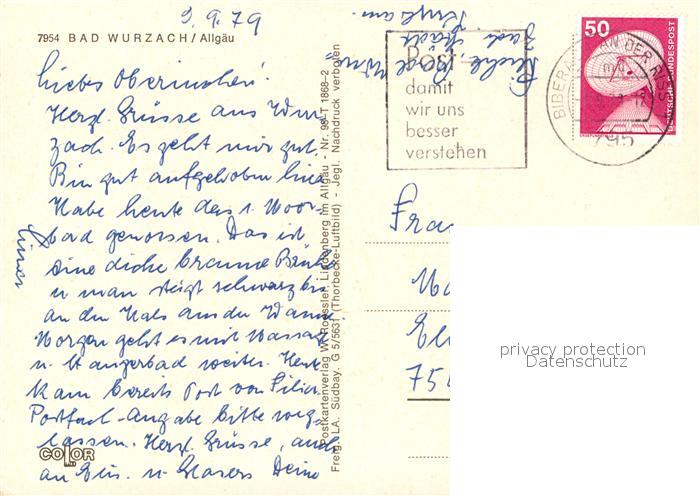 3.9.79
7954 BAD WURZACH/Allgäu
Liebes
Herzl. Grüsse aus Wur-
zach. Es geht mir gut.
Bin gut aufgehoben hier
Habe heute das 1. Moor-
bad genossen. Das ist
eine dicke braune Brühe
u man steigt schwarz bis
an den Hals aus der Wanne
Morgen geht es mit Massage
u. bad weiter. Heute
kam bereits Post von
Postfach-Angabe bitte weg-
lassen. Herzl. Grüsse, auch
an u. Glasers Deine
COLOR
Postkartenverlag W. Roessler, Lindenberg im Allgäu - Nr. 98-T 1868-2
Freig. LA: Südbay. G 5/5631 (Thorbecke-Luftbild) - Jegl. Nachdruck verboten
Post -
damit
wir uns
besser
verstehen
BIBERACH AN DER RISS
795
50
DEUTSCHE BUNDESPOST
Frau
75
privacy protection
Datenschutz